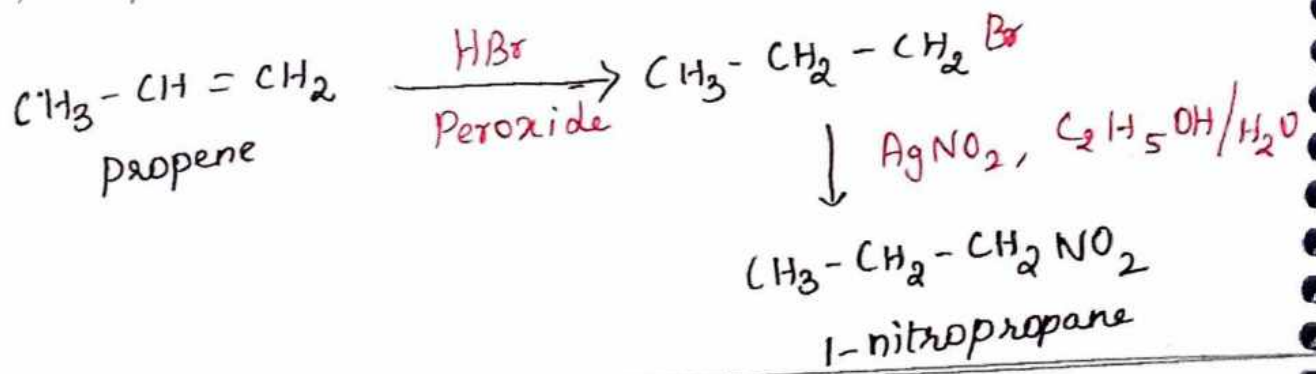 CH₃ - CH = CH₂ HBr Peroxide CH₃ - CH₂ - CH₂ Br
propene
AgNO₂, C₂H₅OH/H₂O
CH₃ - CH₂ - CH₂ NO₂
1-nitropropane